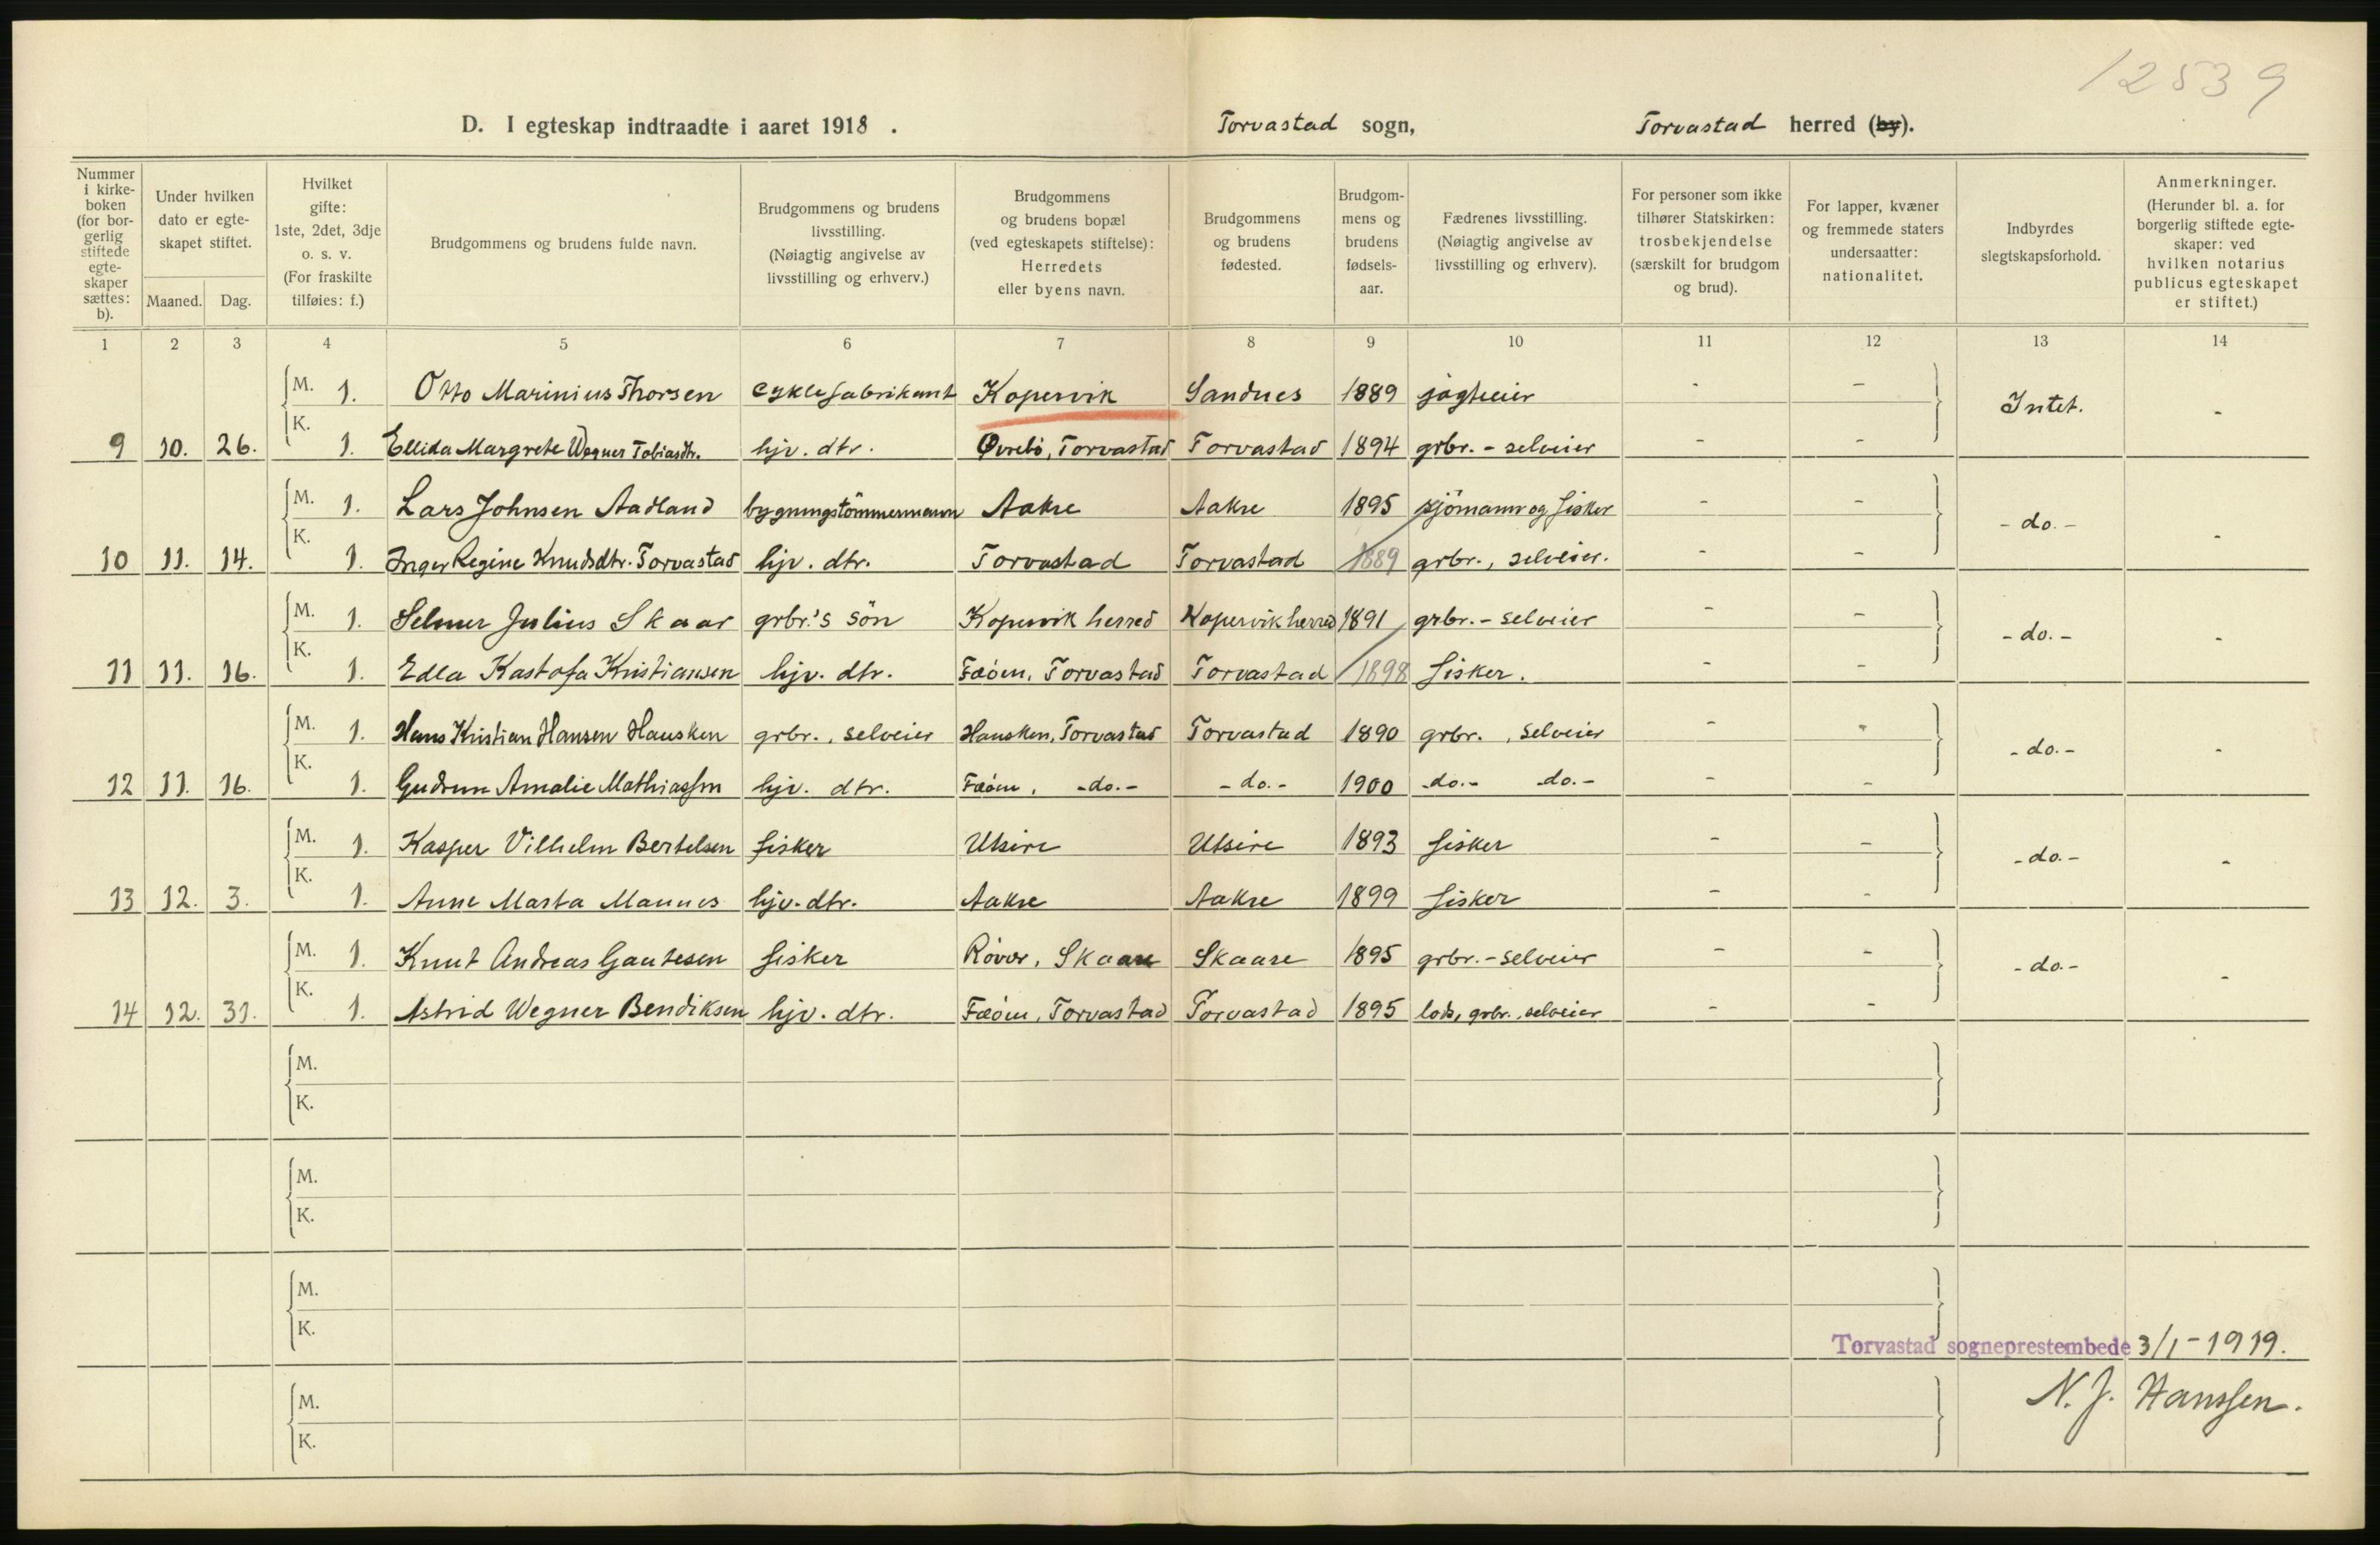 12539
D. I egteskap indtraadte i aaret 1918 . Torvastad sogn, Torvastad herred (by).
Nummer i kirkeboken (for borgerlig stiftede egteskaper sættes: b).
Under hvilken dato er egteskapet stiftet.
Maaned. Dag.
Hvilket gifte: 1ste, 2det, 3dje o. s. v. (For fraskilte tilføies: f.)
Brudgommens og brudens fulde navn.
Brudgommens og brudens livsstilling. (Nøiagtig angivelse av livsstilling og erhverv.)
Brudgommens og brudens bopæl (ved egteskapets stiftelse): Herredets eller byens navn.
Brudgommens og brudens fødested.
Brudgommens og brudens fødselsaar.
Fædrenes livsstilling. (Nøiagtig angivelse av livsstilling og erhverv).
For personer som ikke tilhører Statskirken: trosbekjendelse (særskilt for brudgom og brud).
For lapper, kvæner og fremmede staters undersaatter: nationalitet.
Indbyrdes slegtskapsforhold.
Anmerkninger. (Herunder bl. a. for borgerlig stiftede egteskaper: ved hvilken notarius publicus egteskapet er stiftet.)
1 2 3 4 5 6 7 8 9 10 11 12 13 14
M. 1. Otto Marinius Thorsen cyklefabrikant Kopervik Sandnes 1889 jagteier - - Intet. -
9 10. 26. K. 1. Ellida Margrete Wegner Tobiasdtr. hjv. dtr. Øvrebö, Torvastad Torvastad 1894 grbr. - selveier - -
M. 1. Lars Johnsen Aadland bygningstömmermann Aakre Aakre 1895 sjömann og fisker - - - do. - -
10 11. 14. K. 1. Inger Regine Knudsdtr. Torvastad hjv. dtr. Torvastad Torvastad 1889 grbr., selveier. - -
M. 1. Selmer Julius Skaar grbr.'s sön Kopervik herred Kopervik herred 1891 grbr. - selveier - - - do. - -
11 11. 16. K. 1. Edla Kastofa Kristiansen hjv. dtr. Fæöen, Torvastad Torvastad 1898 fisker. - -
M. 1. Hans Kristian Hansen Hausken grbr., selveier Hausken, Torvastad Torvastad 1890 grbr., selveier - - - do. - -
12 11. 16. K. 1. Gudrun Amalie Mathiassen hjv. dtr. Fæöen, - do. - - do. - 1900 - do. - do. - - -
M. 1. Kasper Vilhelm Bertelsen fisker Utsire Utsire 1893 fisker - - - do. - -
13 12. 3. K. 1. Anne Marta Mannes hjv. dtr. Aakre Aakre 1899 fisker - -
M. 1. Knut Andreas Gautesen fisker Rövær, Skaare Skaare 1895 grbr. - selveier - - - do. - -
14 12. 31. K. 1. Astrid Wegner Bendiksen hjv. dtr. Fæöen, Torvastad Torvastad 1895 lods, grbr., selveier - -
M.
K.
M.
K.
M.
K.
Torvastad sogneprestembede 3/1 - 1919.
M.
N. J. Hanssen.
K.